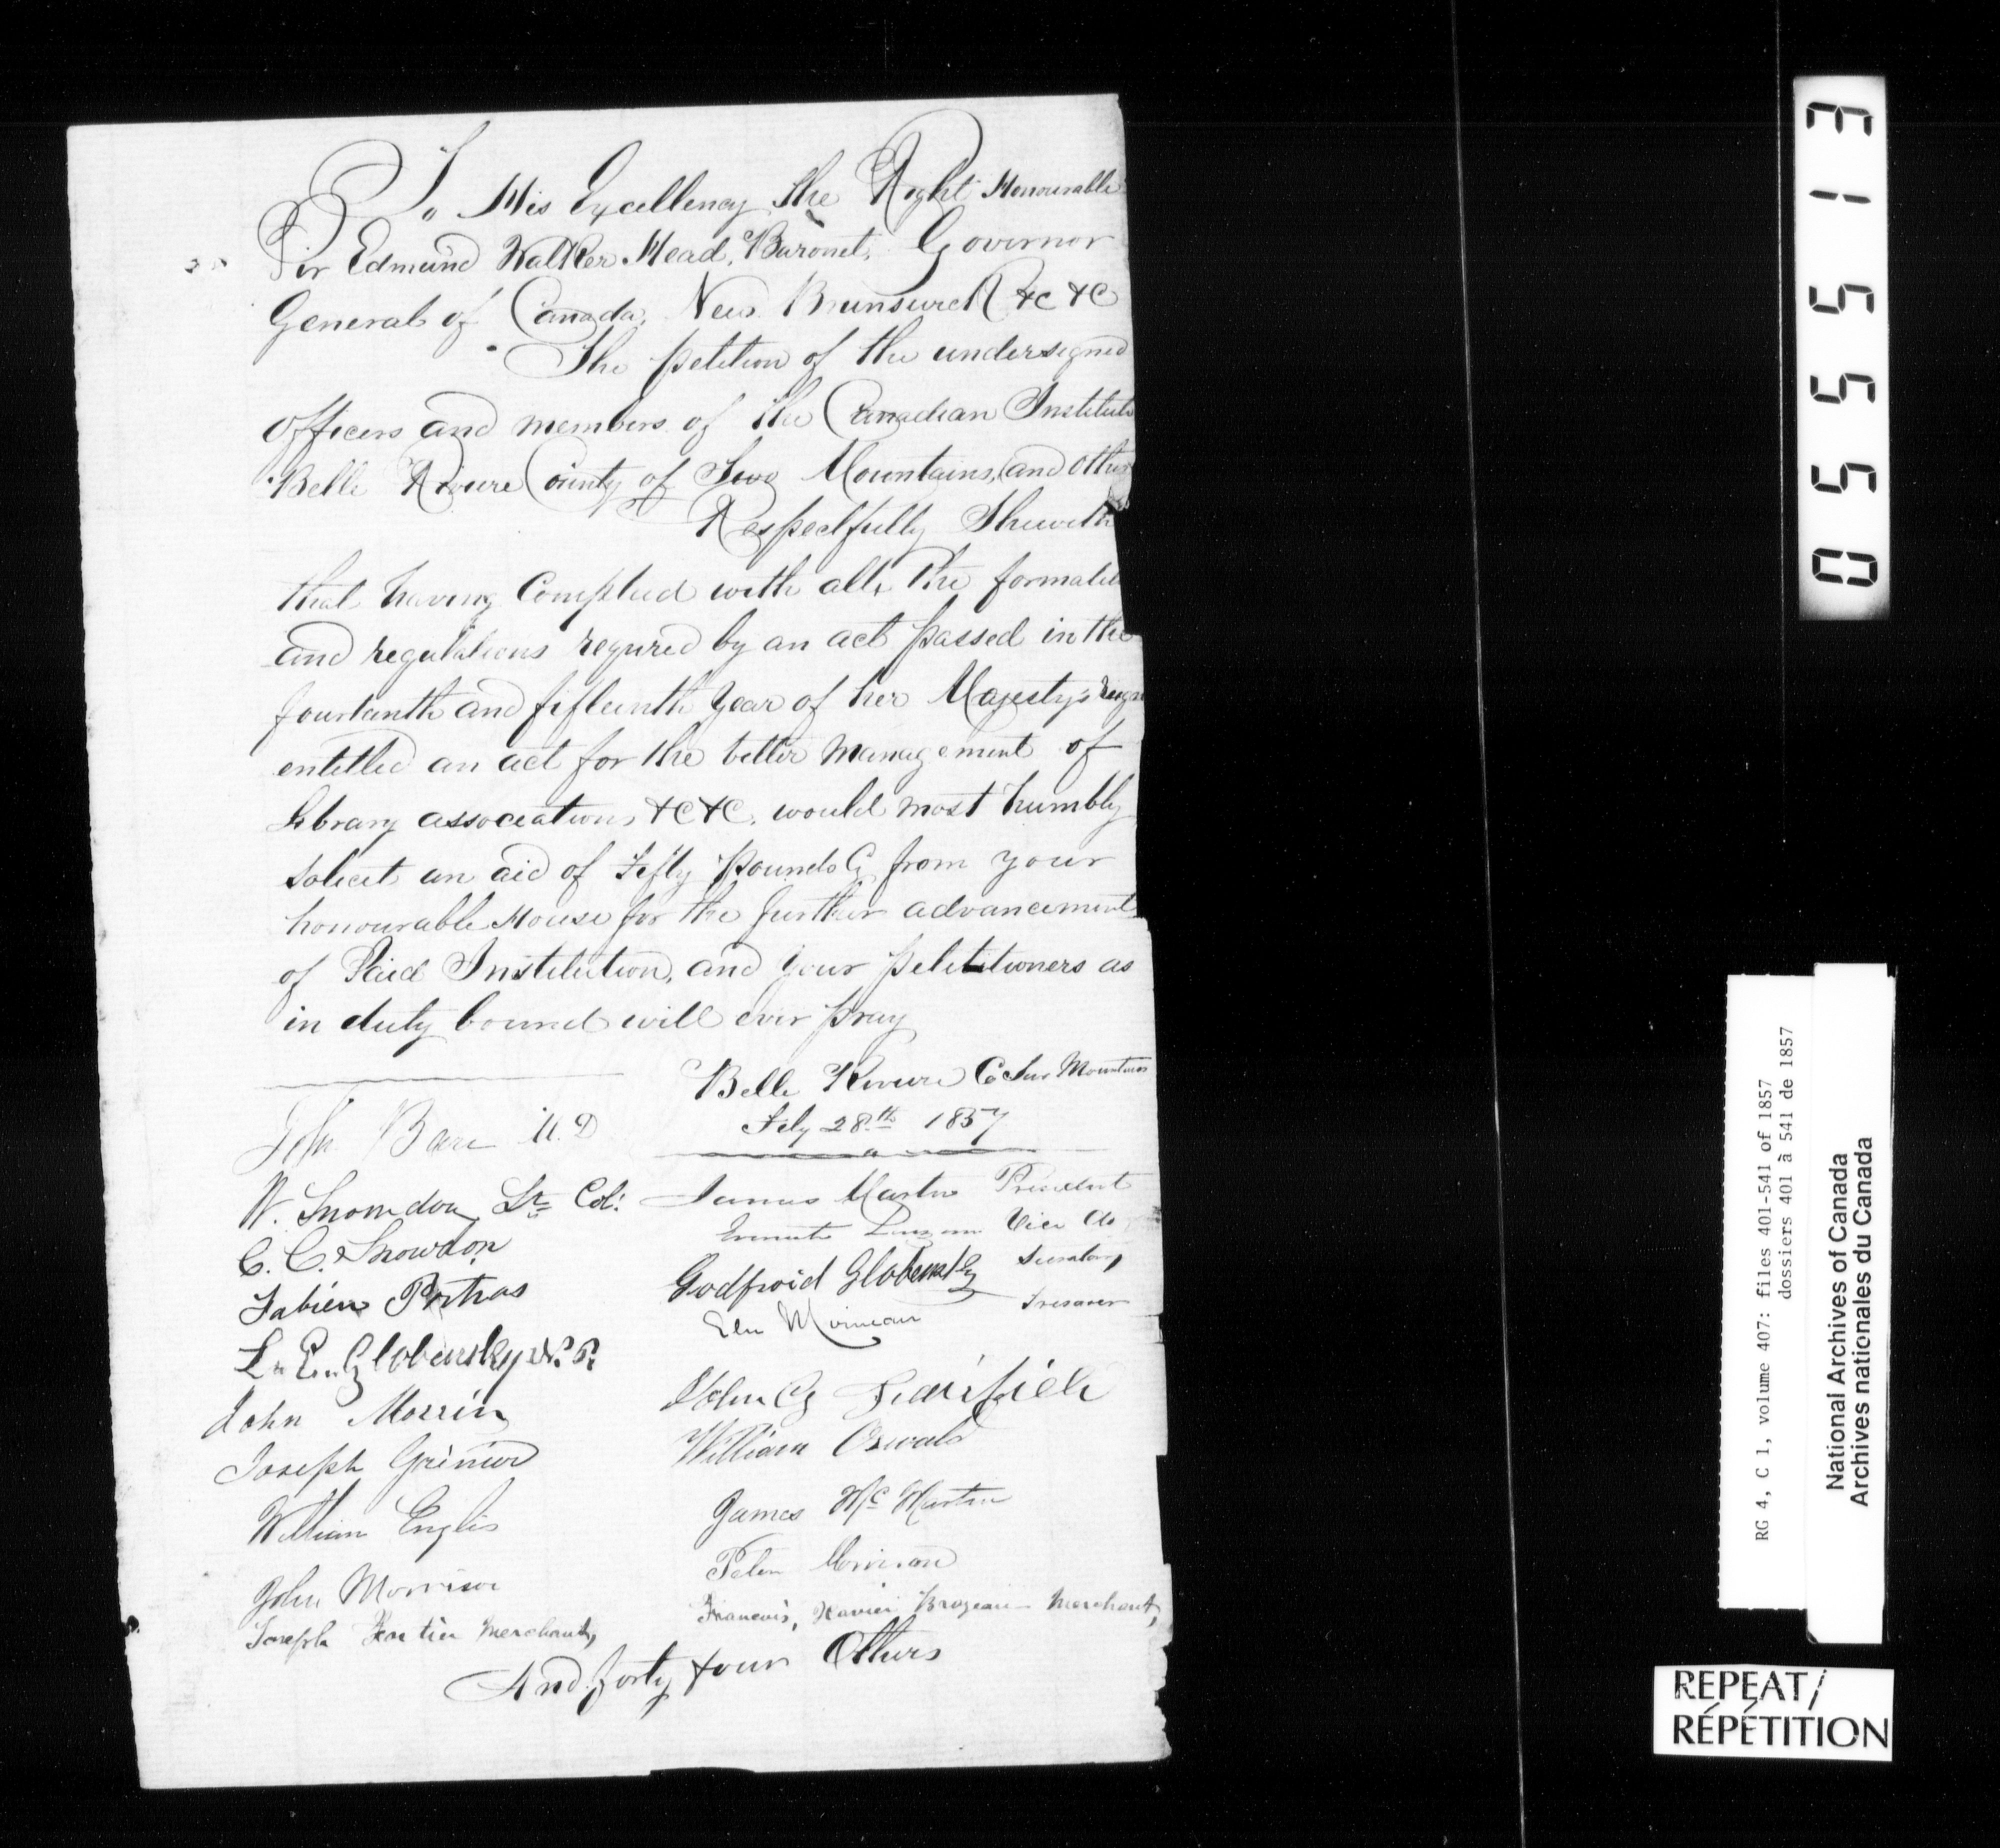 To His Excellency the Right Honourable
Sir Edmund Walker Head, Baronet, Governor
General of Canada, New Brunswick &c &c
The petition of the undersigned
Officers and members of the Canadian Institute
Belle Riviere County of Two Mountains, and others
Respectfully Sheweth
that having Complied with all the formalit
and regulations required by an act passed in the
fourteenth and fifteenth year of her Majesty's reign
entitled an act for the better management of
Library associations &c &c. would most humbly
solicit an aid of Fifty pounds Cy from your
honourable House for the further advancement
of Said Institution, and your petititioners as
in duty bound will ever pray
Belle Riviere Co Two Mountains
July 28th 1857
John Barr M.D
W. Snowdon Lt Col:
C. C. Snowdon
Fabien Portras
L. E. Globensky N.P.
John Morrin
Joseph Grenier
William Englis
John Morrison
Joseph Fortier Merchant,
James Martin President
Vice do
Godfroid Globensky Secretary
Tresorer
John Cy
William Oswald
James Mc Martin
Peter Morrison
Francois, Xavier Brazeau Merchant,
And forty four Others
05513
RG 4, C 1, volume 407: files 401-541 of 1857
dossiers 401 à 541 de 1857
National Archives of Canada
Archives nationales du Canada
REPEAT/
RÉPÉTITION